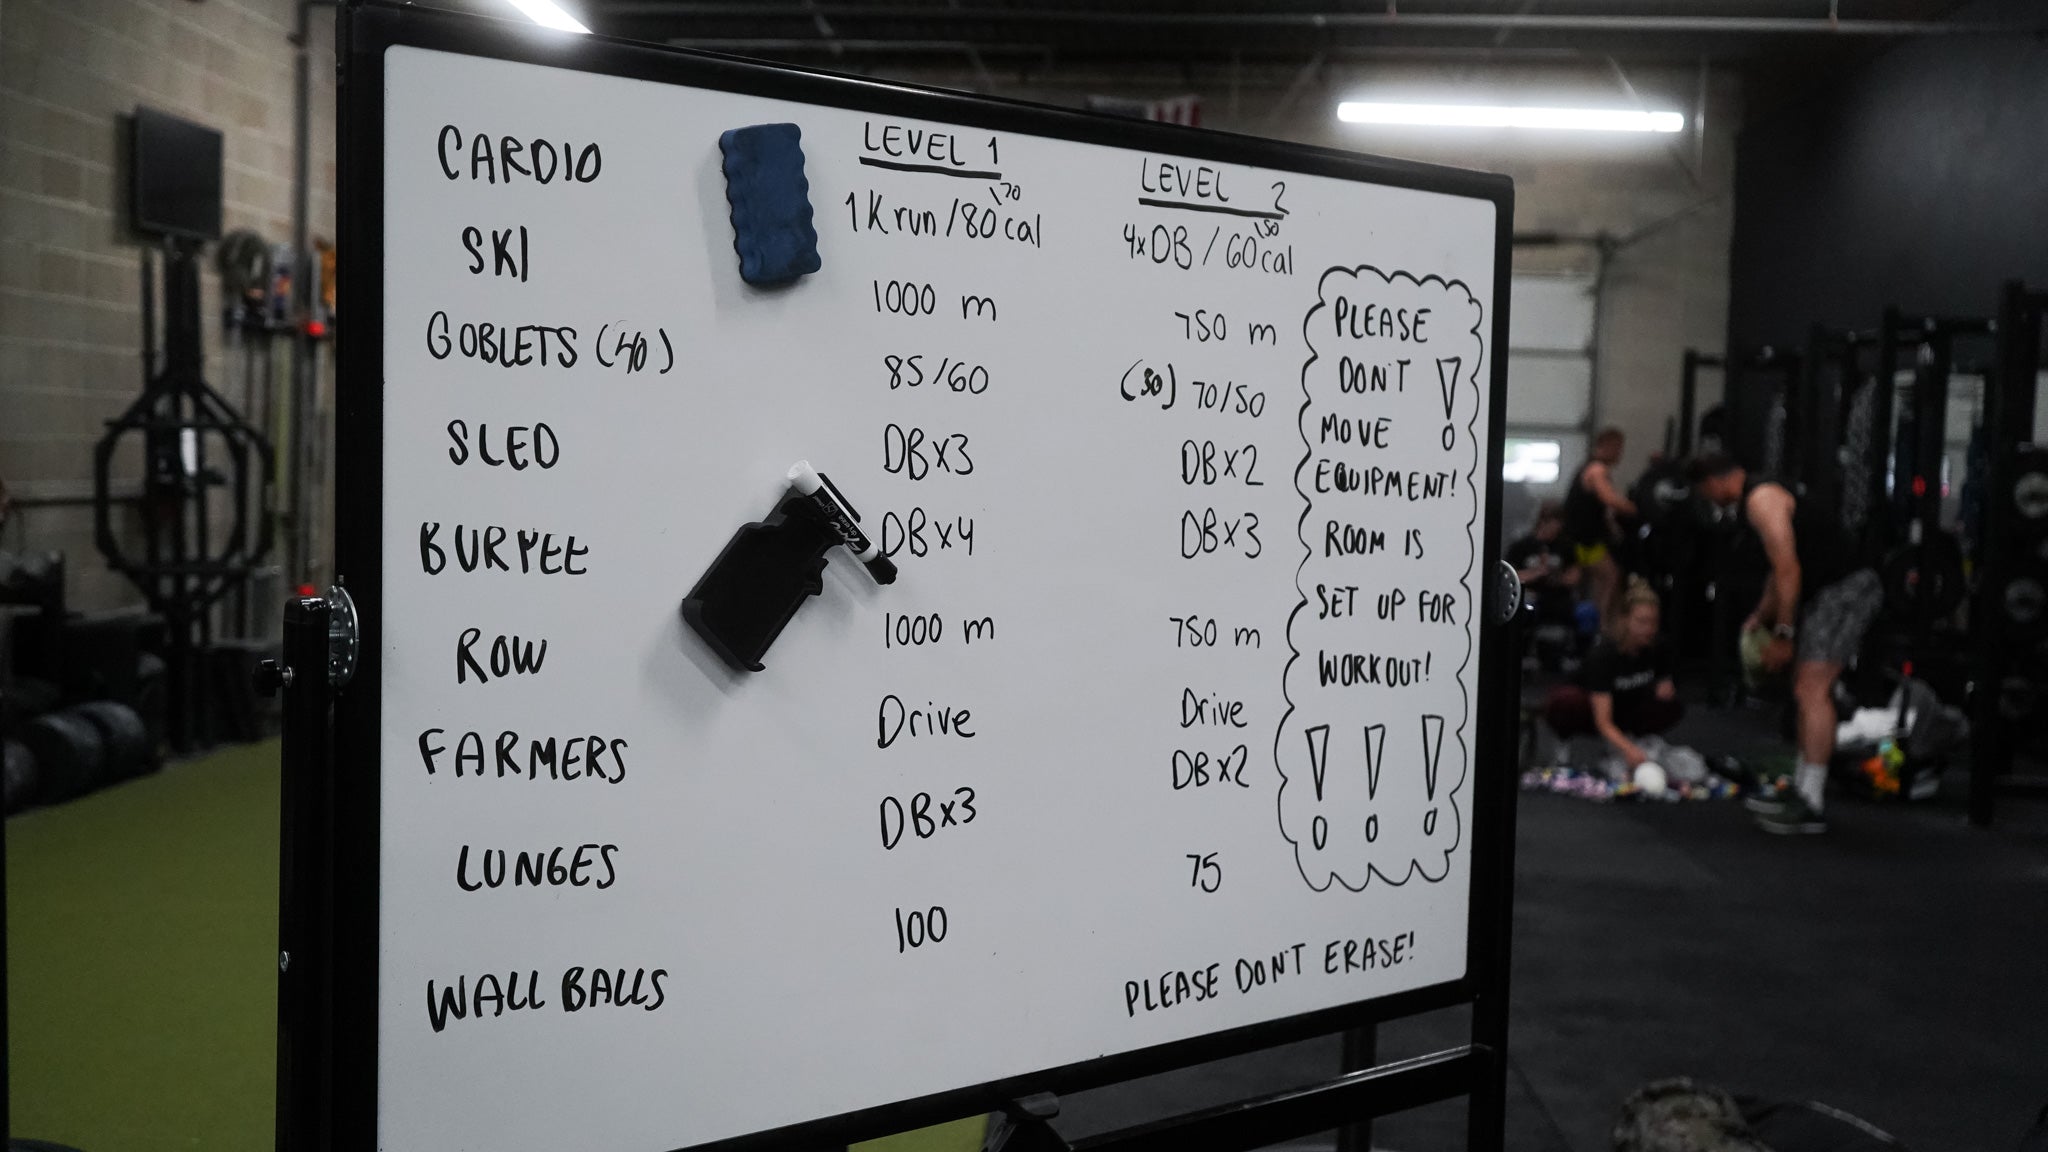 CARDIO
SKI
GOBLETS (40)
SLED
BURPEE
ROW
FARMERS
LUNGES
WALL BALLS
LEVEL 1
1K run/80\70 cal
1000 m
85/60
DBx3
DBx4
1000 m
Drive
DBx3
100
LEVEL 2
4xDB/60\50 cal
750 m
(30) 70/50
DBx2
DBx3
750 m
Drive
DBx2
75
PLEASE
DON'T !
MOVE
EQUIPMENT!
ROOM IS
SET UP FOR
WORKOUT!
! ! !
PLEASE DON'T ERASE!